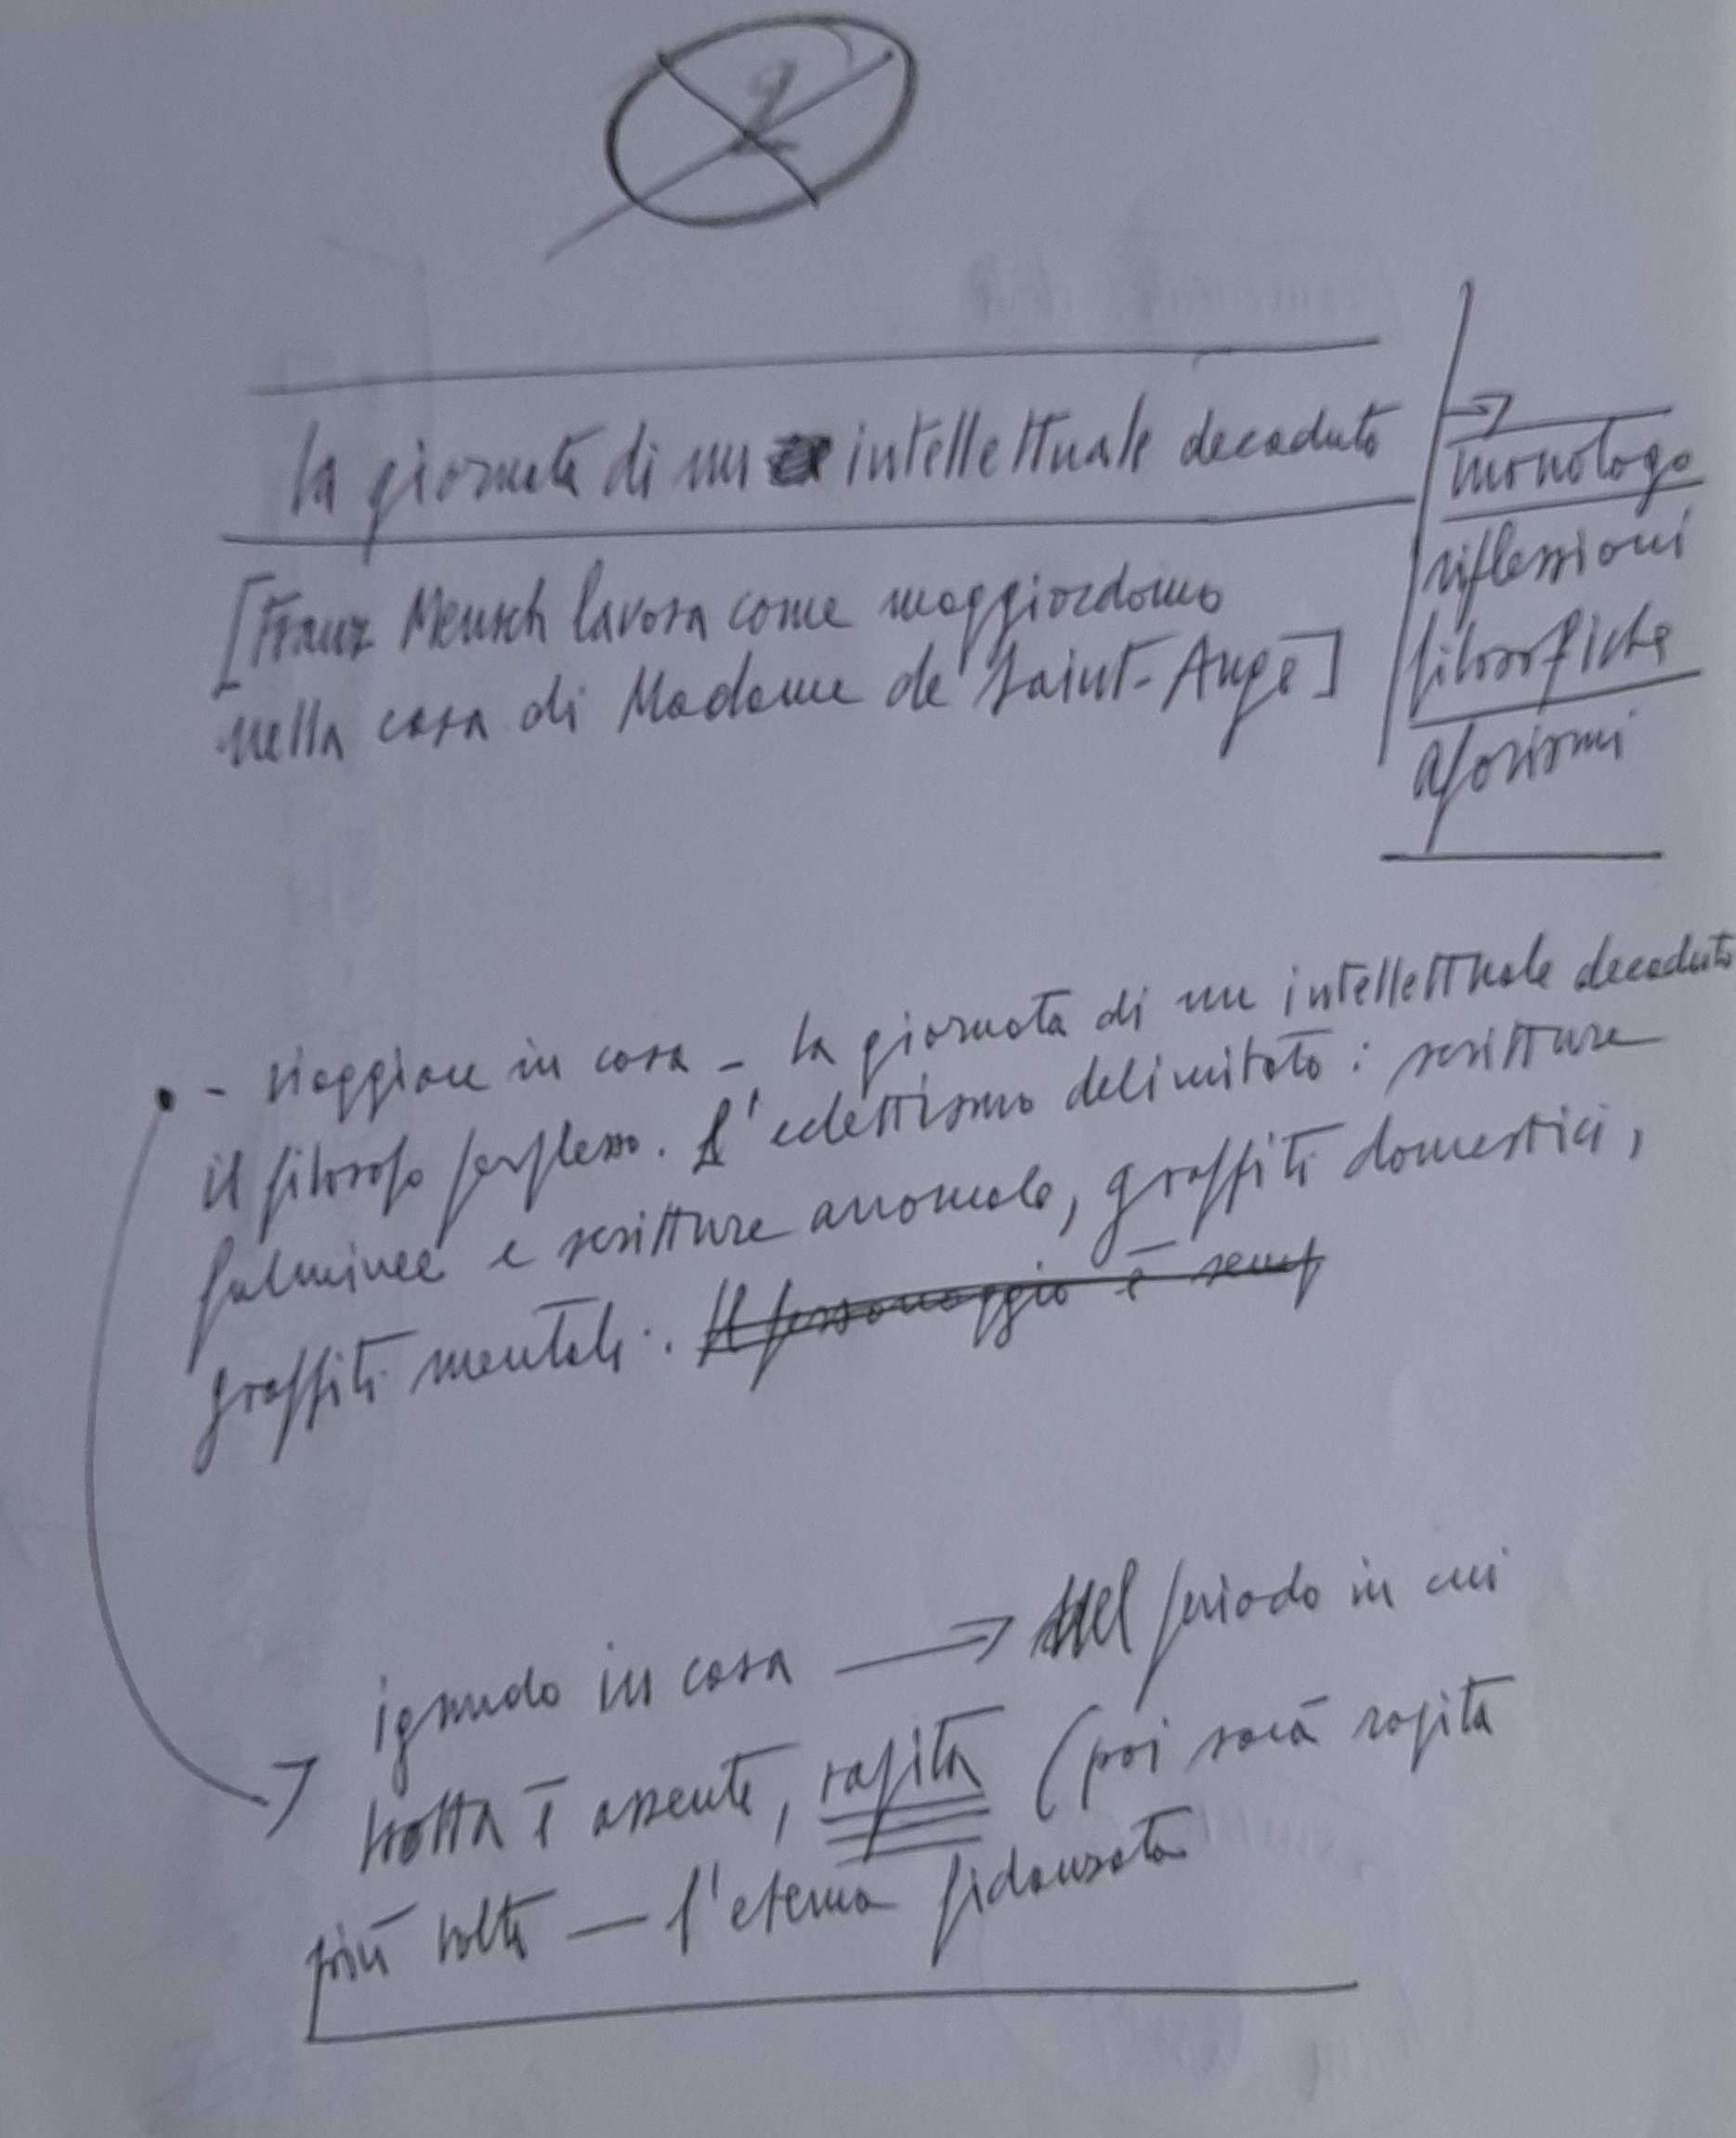 2
la giornata di un intellettuale decaduto
[Franz Mensch lavora come maggiordomo
nella casa di Madame de Saint-Ange]
monologo
riflessioni
filosofiche
aforismi
- viaggiare in casa - la giornata di un intellettuale decaduto
il filosofo perplesso. L'eclettismo delimitato: scritture
fulminee e scritture anomale, graffiti domestici,
graffiti mentali. Il personaggio è semp
ignudo in casa → Nel periodo in cui
è assente, rapita (poi sarà rapita
più volte — l'eterna fidanzata